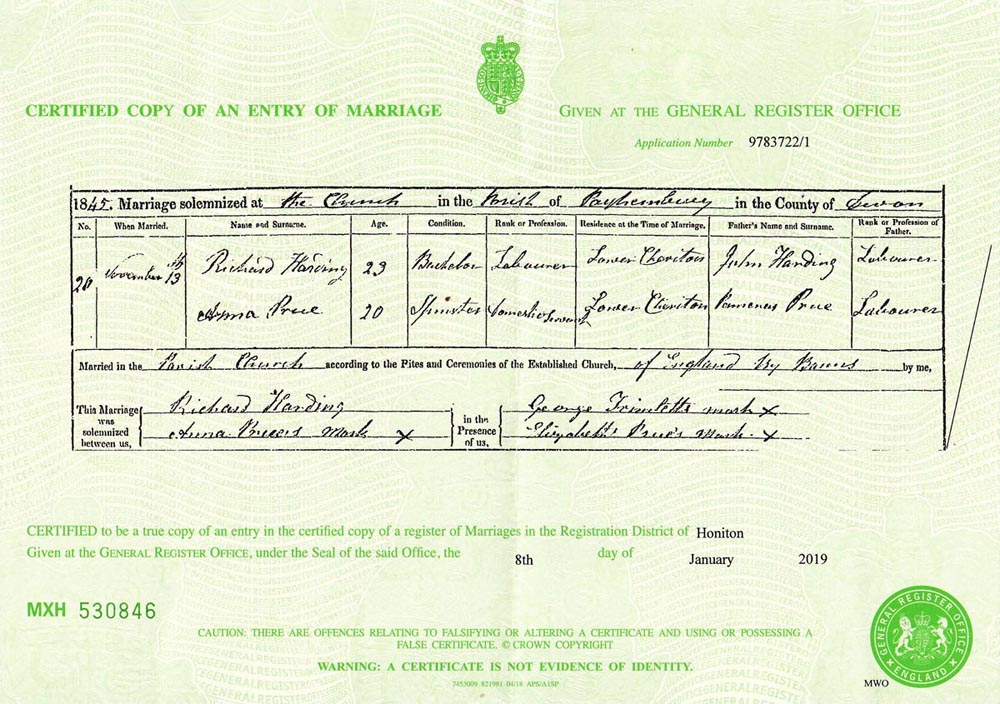 CERTIFIED COPY OF AN ENTRY OF MARRIAGE
GIVEN AT THE GENERAL REGISTER OFFICE
Application Number 9783722/1
1845. Marriage solemnized at the Church in the Parish of Payhembury in the County of Devon
No. When Married. Name and Surname. Age. Condition. Rank or Profession. Residence at the Time of Marriage. Father's Name and Surname. Rank or Profession of Father.
20 November 13th Richard Harding 23 Bachelor Labourer Lower Cheriton John Harding Labourer
Anna Prue 20 Spinster Domestic Servant Lower Cheriton Pamenas Prue Labourer
Married in the Parish Church according to the Rites and Ceremonies of the Established Church, of England By Banns by me,
This Marriage was solemnized between us,
Richard Harding
Anna mark X
in the Presence of us,
George Trimletts mark X
Elizabeth Prue's Mark. X
CERTIFIED to be a true copy of an entry in the certified copy of a register of Marriages in the Registration District of Honiton
Given at the GENERAL REGISTER OFFICE, under the Seal of the said Office, the 8th day of January 2019
MXH 530846
CAUTION: THERE ARE OFFENCES RELATING TO FALSIFYING OR ALTERING A CERTIFICATE AND USING OR POSSESSING A
FALSE CERTIFICATE. © CROWN COPYRIGHT
WARNING: A CERTIFICATE IS NOT EVIDENCE OF IDENTITY.
7453009 821981 04/18 APS/A1SP
GENERAL REGISTER OFFICE
ENGLAND
MWO